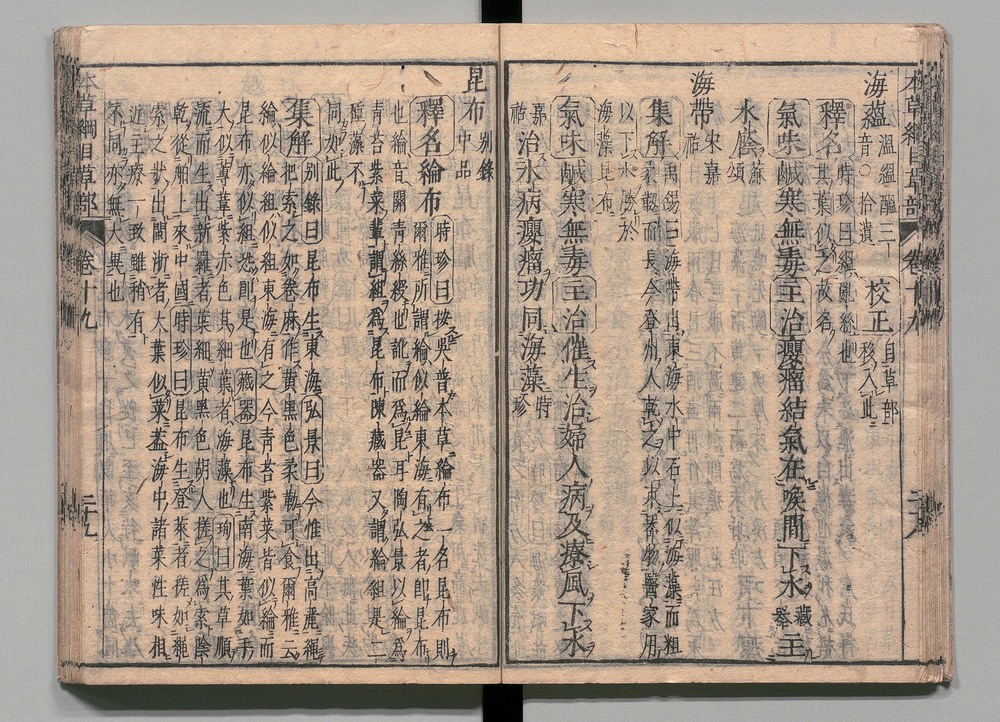 本草綱目草部 卷十九 二十八
海蘊 温縕醞三音○拾遺 校正 自草部移入此
釋名 時珍曰縕亂絲也其葉似之故名
氣味 鹹寒無毒 主治 癭瘤結氣在喉間下水 藏器 主
水癊 蘇頌
海帶 宋嘉祐
集解 禹錫曰海帶出東海水中石上似海藻而粗柔韌而長今登州人乾之以束器物醫家用以下水勝於海藻昆布
氣味 鹹寒無毒 主治 催生治婦人病及療風下水
嘉祐 治水病癭瘤功同海藻 時珍
昆布 別錄中品
釋名 綸布 時珍曰按吳普本草綸布一名昆布則
爾雅所謂綸似綸東海有之者即昆布
也綸音關青絲綬也訛而爲昆耳陶弘景以綸爲
青苔紫菜輩謂組爲昆布陳藏器又謂綸組是二
種藻不
同如此
集解 別錄曰昆布生東海弘景曰今惟出高麗繩
把索之如卷麻作黃黑色柔韌可食爾雅云
綸似綸組似組東海有之今青苔紫菜皆似綸而
昆布亦似組恐即是也藏器曰昆布生南海葉如手
大似薄葦紫赤色其細葉者海藻也珣曰其草順
流而生出新羅者葉細黃黑色胡人搓之爲索陰
乾從舶上來中國時珍曰昆布生登萊者搓如繩
索之狀出閩浙者大葉似菜葢海中諸菜性味相
近主療一致雖稍有
不同亦無大異也
本草綱目草部 卷十九 二十九